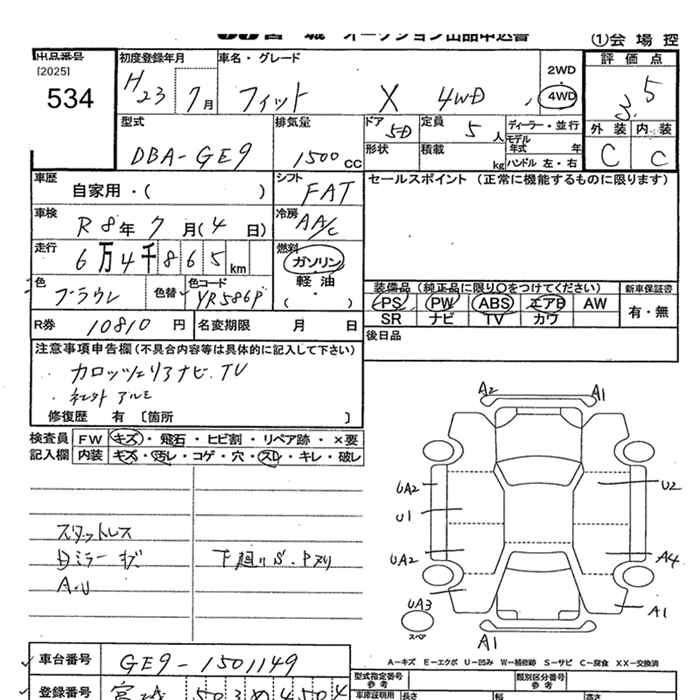 JU 宮城 オークション出品申込書
①会場控
出品番号
[2025]
534
初度登録年月
H23 7月
車名・グレード
フィット X 4WD
2WD
・4WD
評価点
3.5
外装 内装
C C
型式
DBA-GE9
排気量
1500cc
ドア 5D
形状
定員 5人
積載 kg
ディーラー・並行
モデル年式 年
ハンドル 左・右
車歴
自家用・( )
シフト
FAT
セールスポイント (正常に機能するものに限ります)
車検
R8年7月(4日)
冷房
AA/C
走行
6万4千865km
燃料
ガソリン
軽油
(・)
色
ブラウン
色替
色コード
YR586P
装備品 (純正品に限り○をつけてください)
PS PW ABS エアB AW
SR ナビ TV カワ
新車保証書
有・無
R券 10810円
名変期限 月 日
後日品
注意事項申告欄 (不具合内容等は具体的に記入して下さい)
カロッツェリアナビ.TV
社外アルミ
修復歴 有 〔箇所 〕
検査員記入欄
FW キズ・飛石・ヒビ割・リペア跡・×要
内装 キズ・汚レ・コゲ・穴・スレ・キレ・破レ
スタットレス
Dミラーキズ
A.U
下廻りS.Pヌリ
A2 A1
UA2 U2
U1
UA2 A4
UA3 A1
スペア
A1
A-キズ E-エクボ U-凹み W-補修跡 S-サビ C-腐食 XX-交換済
車台番号 GE9-1501149
登録番号 宮城 503 め 4504
型式指定番号
参考
類別区分番号
参考
車庫証明用 長さ 幅 高さ